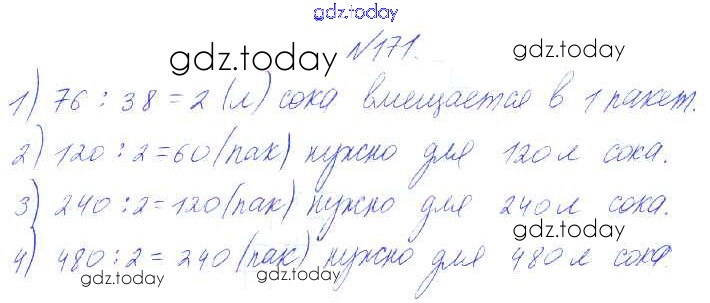 gdz.today
gdz.today №171. gdz.today
1) 76 : 38 = 2 (л) сока вмещается в 1 пакет.
2) 120 : 2 = 60 (пак) нужно для 120 л сока.
3) 240 : 2 = 120 (пак) нужно для 240 л сока.
gdz.today
4) 480 : 2 = 240 (пак) нужно для 480 л сока.
gdz.today gdz.today